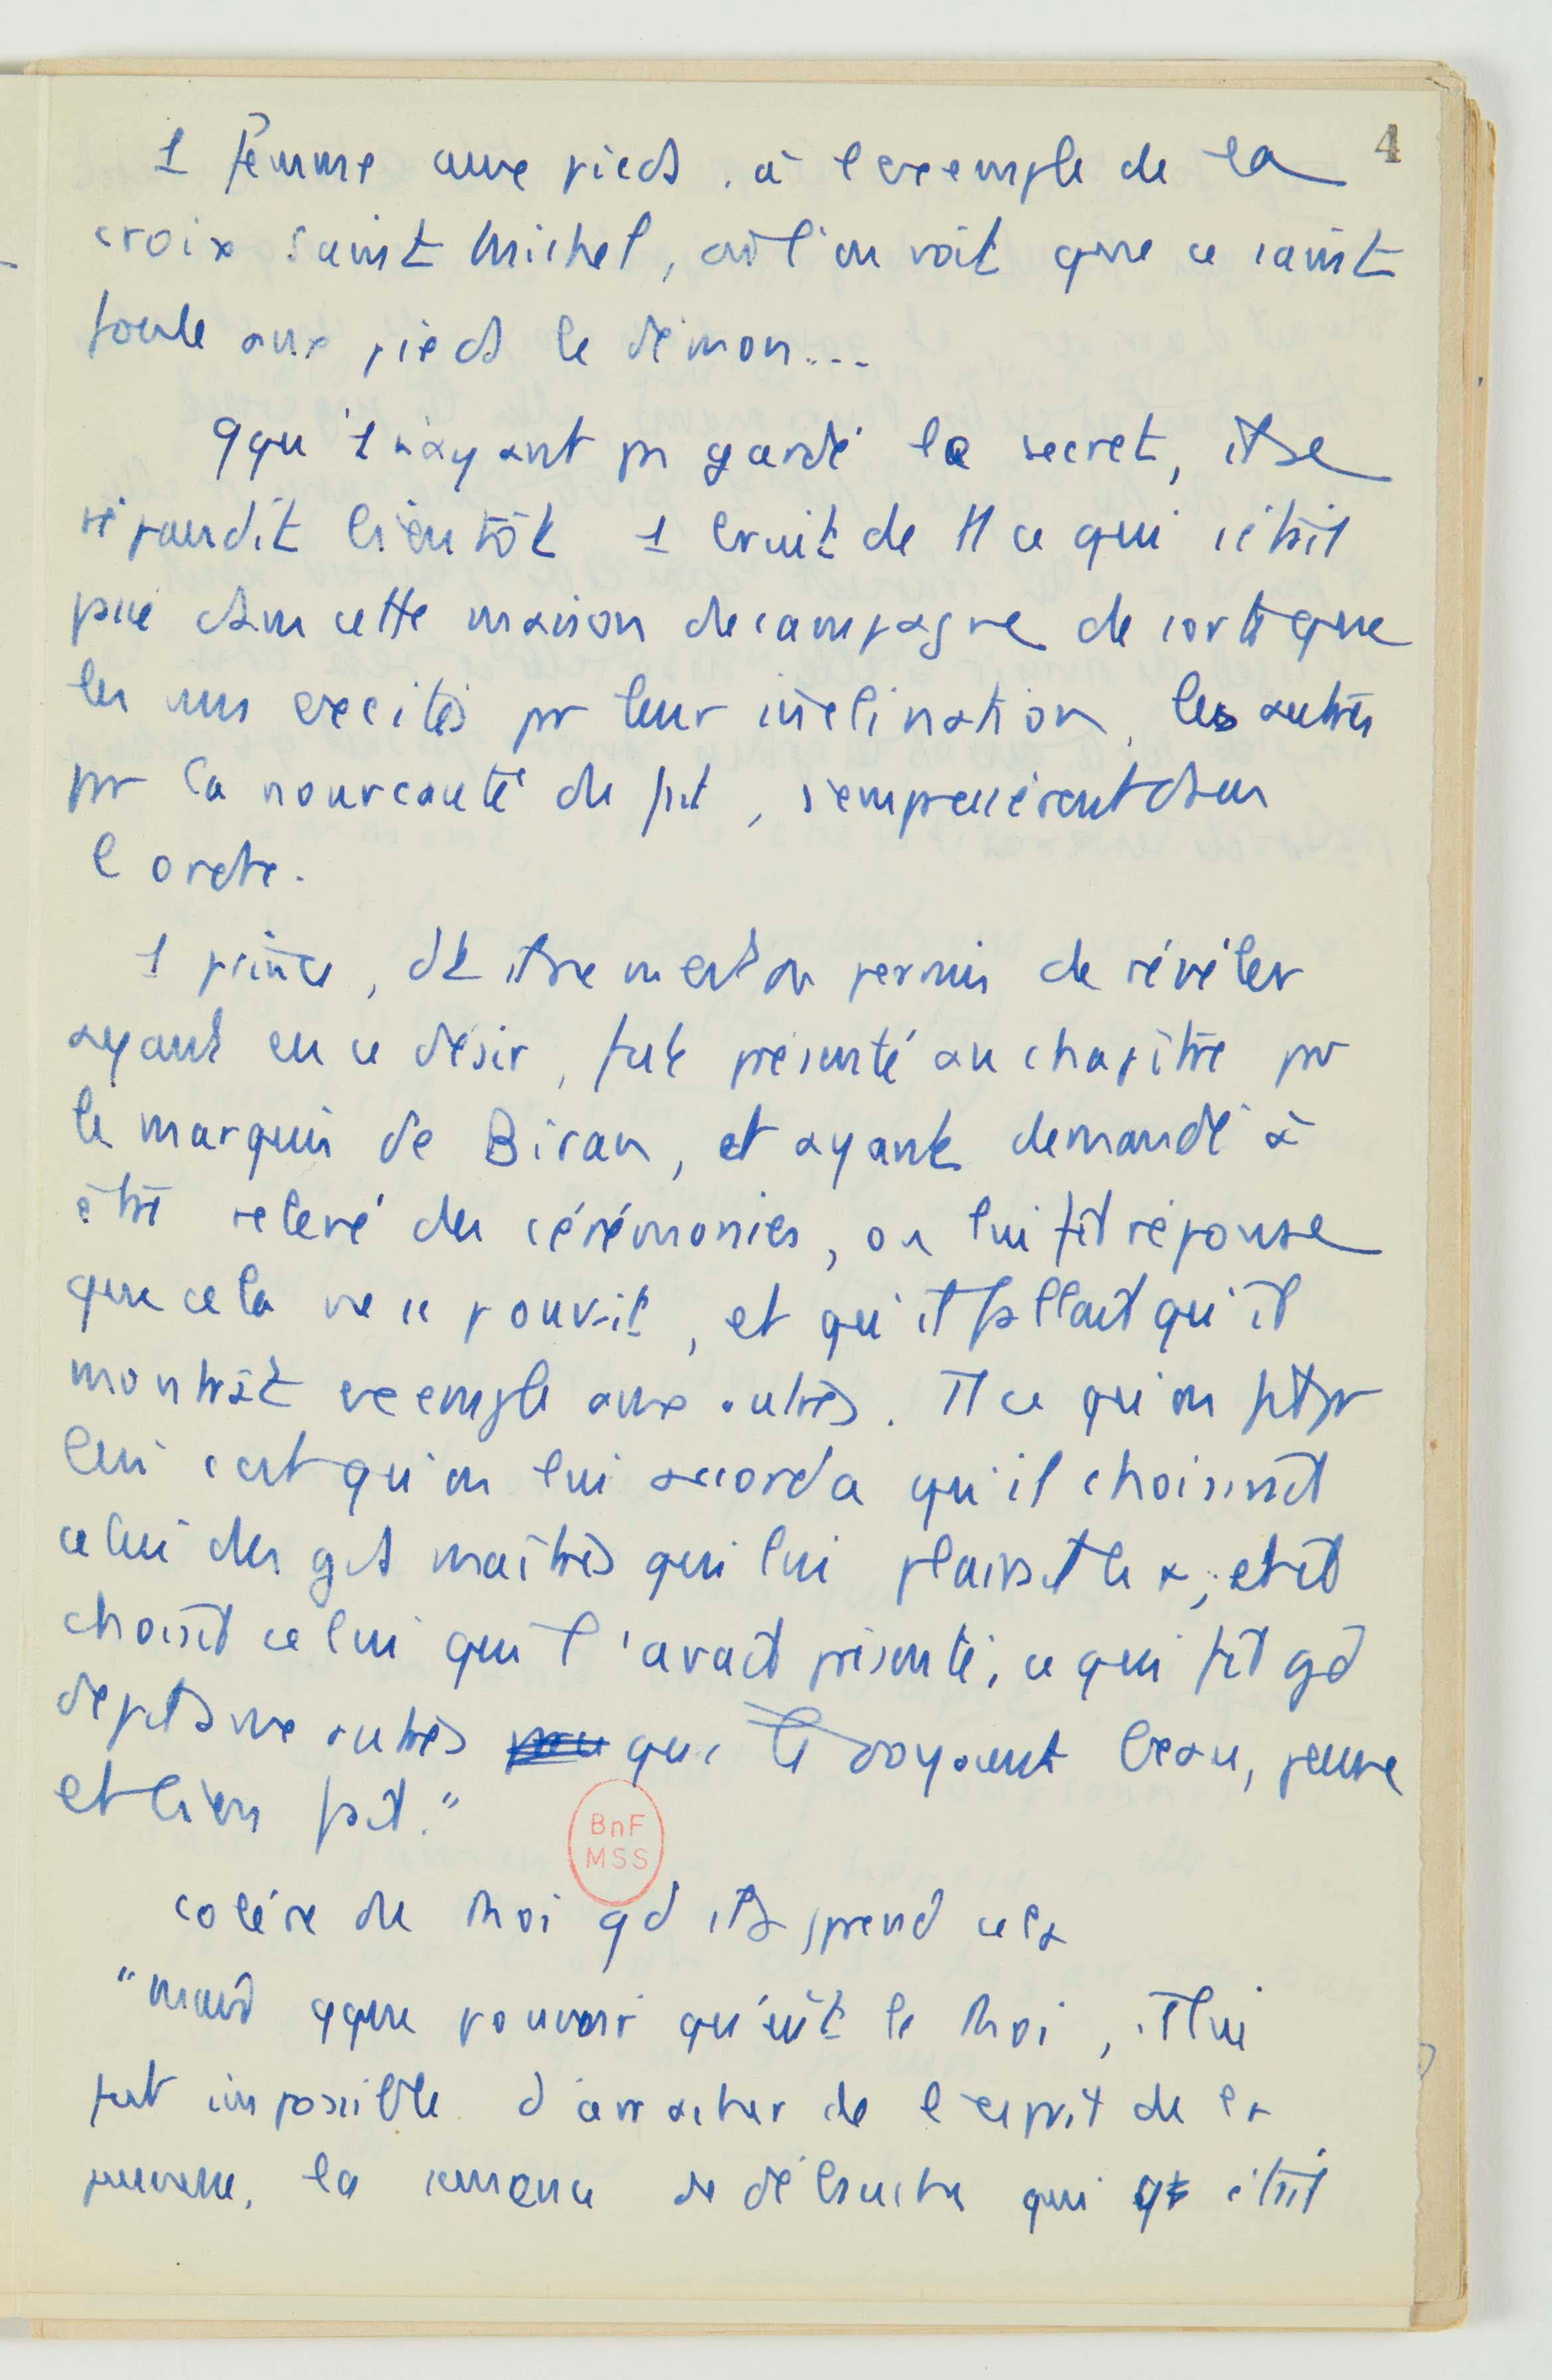 4
1 femme aux pieds, à l'exemple de la
croix saint Michel, où l'on voit que ce saint
foule aux pieds le démon...
qqu'1 n'ayant pas gardé le secret, il se
répandit bientôt 1 bruit de tt ce qui s'était
passé dans cette maison de campagne de sorte que
les uns excités par leur inclination, les autres
par la nouveauté du fait, s'empressèrent dans
l'ordre.
1 prince, dt il ne m'est pas permis de révéler
ayant eu ce désir, fut présenté au chapitre par
le marquis de Biran, et ayant demandé à
être relevé des cérémonies, on lui fit réponse
que cela ne se pouvait, et qu'il fallait qu'il
montrât exemple aux autres. Tt ce qu'on fit pr
lui c'est qu'on lui accorda qu'il choisirait
celui des gds maîtres qui lui plairait le +, et il
choisit celui qui l'avait présenté, ce qui fit gd
dépit aux autres qui le voyaient beau, jeune
et bien fait."
BnF
MSS
colère du Roi qd il apprend cela
"mais qque pouvoir qu'eût le Roi, il lui
fut impossible d'arracher de l'esprit de la
jeunesse, la semence de débauche qui était